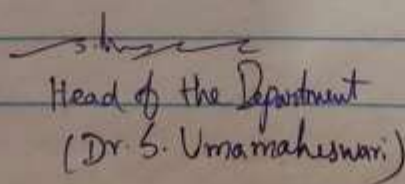 Head of the Department
(Dr. S. Umamaheswari)